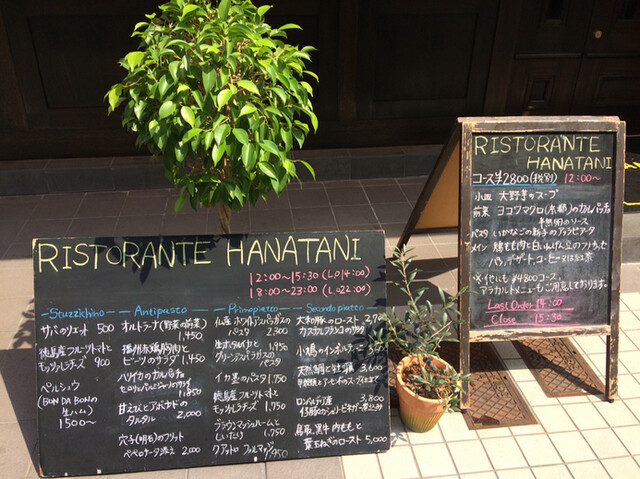 RISTORANTE HANATANI
12:00〜15:30 (LO14:00)
18:00〜23:00 (LO22:00)
Stuzzichino
サバのリエット 500
徳島産フルーツトマトと
モッツァレラチーズ 900
ペルシュウ
(BON DA BONの
生ハム)
1500〜
Antipasto
オルトラーナ(野菜の前菜)
1,450
播州赤鶏胸肉と
ビーツのサラダ 1,450
ハリイカのカルパッチョ
1,850
甘えびとアボカドの
タルタル 2,000
穴子(明石)のフリット
ペペロナータ添え 2,000
Primopiatto
仏産 ホワイトアスパラガスの
パスタ 2,300
生ポルタイカと
グリーンアスパラガスの
パスタ 1,950
イカ墨のパスタ 1,750
徳島産フルーツトマトと
モッツァレラチーズ 1,750
ブラウンマッシュルームと
しいたけ 1,750
クアットロ フォルマッジ 1,950
Secondopiatto
大麦の豚のロースト 2,7
小鳩のインボルティーニ
天然鯛と牡蠣 3,600
ロンバルディア産
3,800
仔豚のスペアリビネガー煮込み
鳥取、黒牛 内ももと
葉玉ねぎのロースト 5,000
RISTORANTE
HANATANI
コース ¥2800(税別) 12:00〜
小皿 大野芋のスープ
前菜 ヨコワマグロ(京都)のカルパッチョ
のソース
パスタ いかなごの新子のアラビアータ
メイン 鶏もも肉と白いんげん豆のフリカッセ
パン、デザート、コーヒー又は紅茶
※他にも ¥4800コース、
アラカルトメニューもご用意しております。
Last Order 14:00
Close 15:30